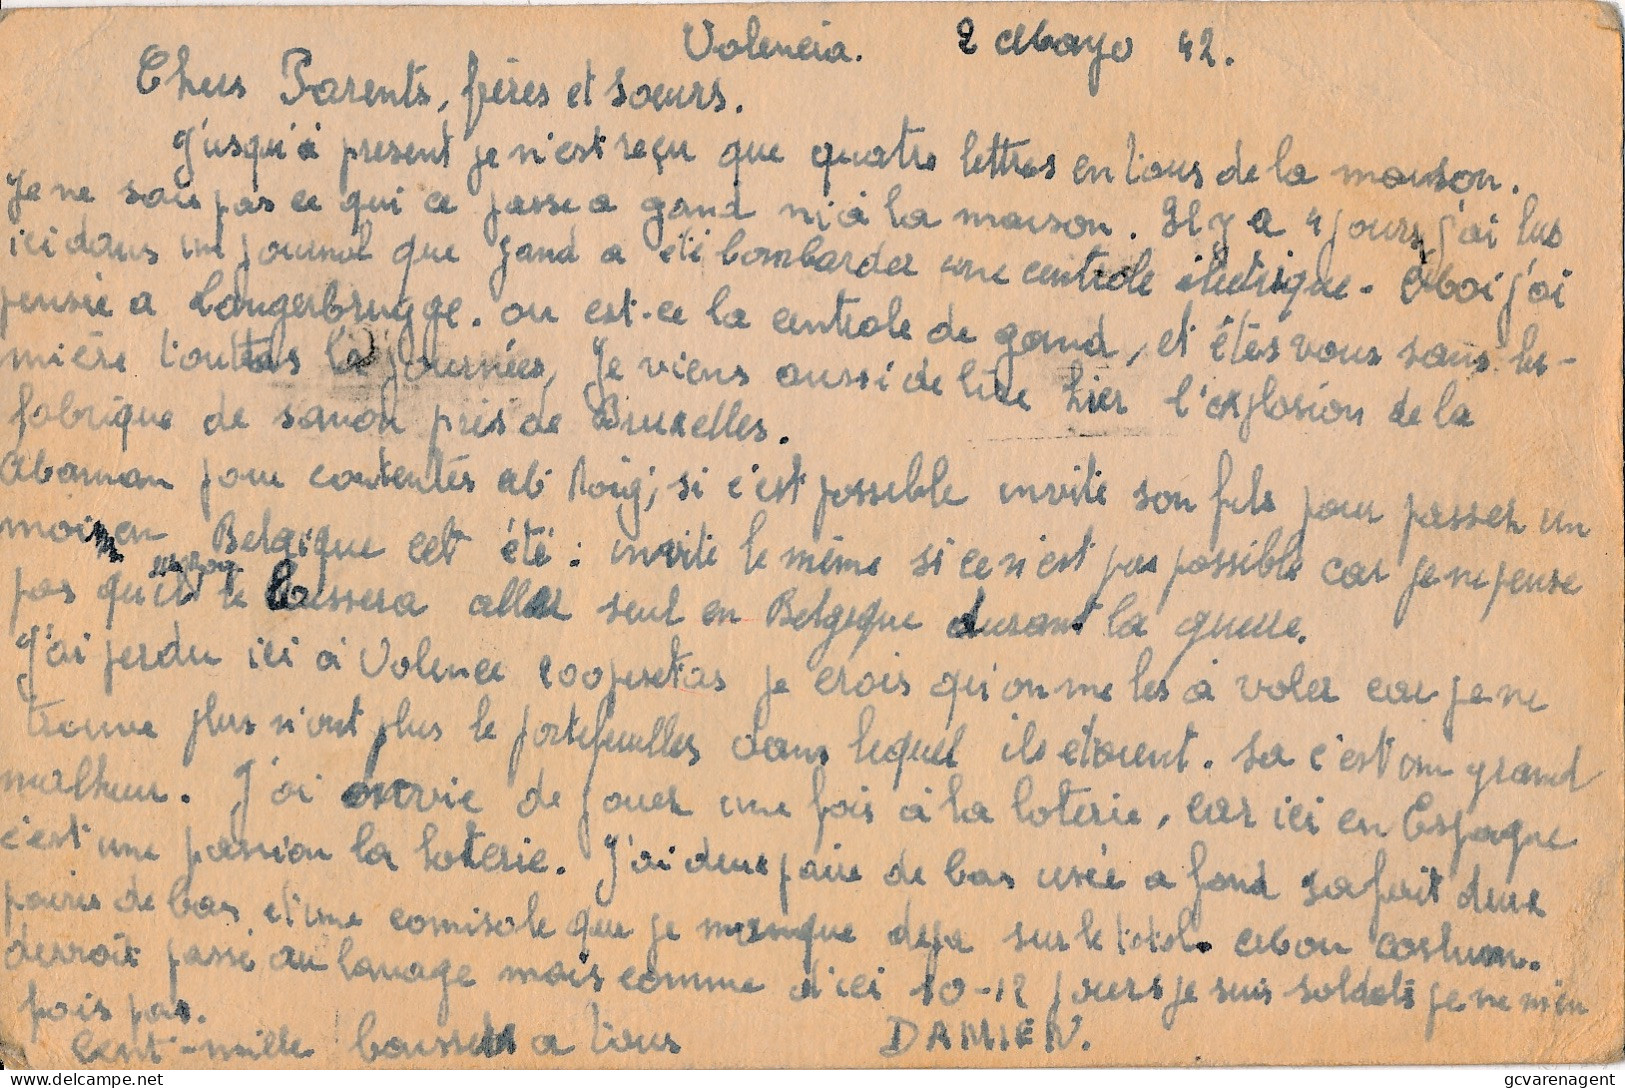 Valencia. 2 Mayo 42.
Chers Parents, frères et sœurs.
J'usqu'à present je n'est reçu que quatre lettres en tous de la maison.
Je ne sais pas ce qui ce passe a gand ni à la maison. Il y a 4 jours j'ai lus
ici dans un journal que gand a été bombarder une centrale électrique. Moi j'ai
pensée a Langerbrugge. ou est-ce la centrale de gand, et êtes vous sans lu-
mière toutes la journées, Je viens aussi de lire hier l'explosion de la
fabrique de savon près de Bruxelles.
Maman pour contentés Mr Roig, si c'est possible invite son fils pour passer un
mois en Belgique cet été : invite le même si ce n'est pas possible car je ne pense
pas qu'il le laissera aller seul en Belgique durant la guerre.
J'ai perdu ici à Valence 200 pesetas je crois qu'on me les à voler car je ne
trouve plus n'ont plus le portefeuilles dans lequel ils étaient. Sa c'est un grand
malheur. J'ai envie de jouer une fois à la loterie, car ici en Espagne
c'est une passion la loterie. J'ai deux paire de bas usée a fond sa fait deux
paires de bas et une camisole que je manque deja sur le total. Mon costum.
devrait passé au lavage mais comme d'ici 10-12 jours je suis soldats je ne m'en
fais pas.
Cent-mille baissers a tous DAMIEN.
© gcvarenagent